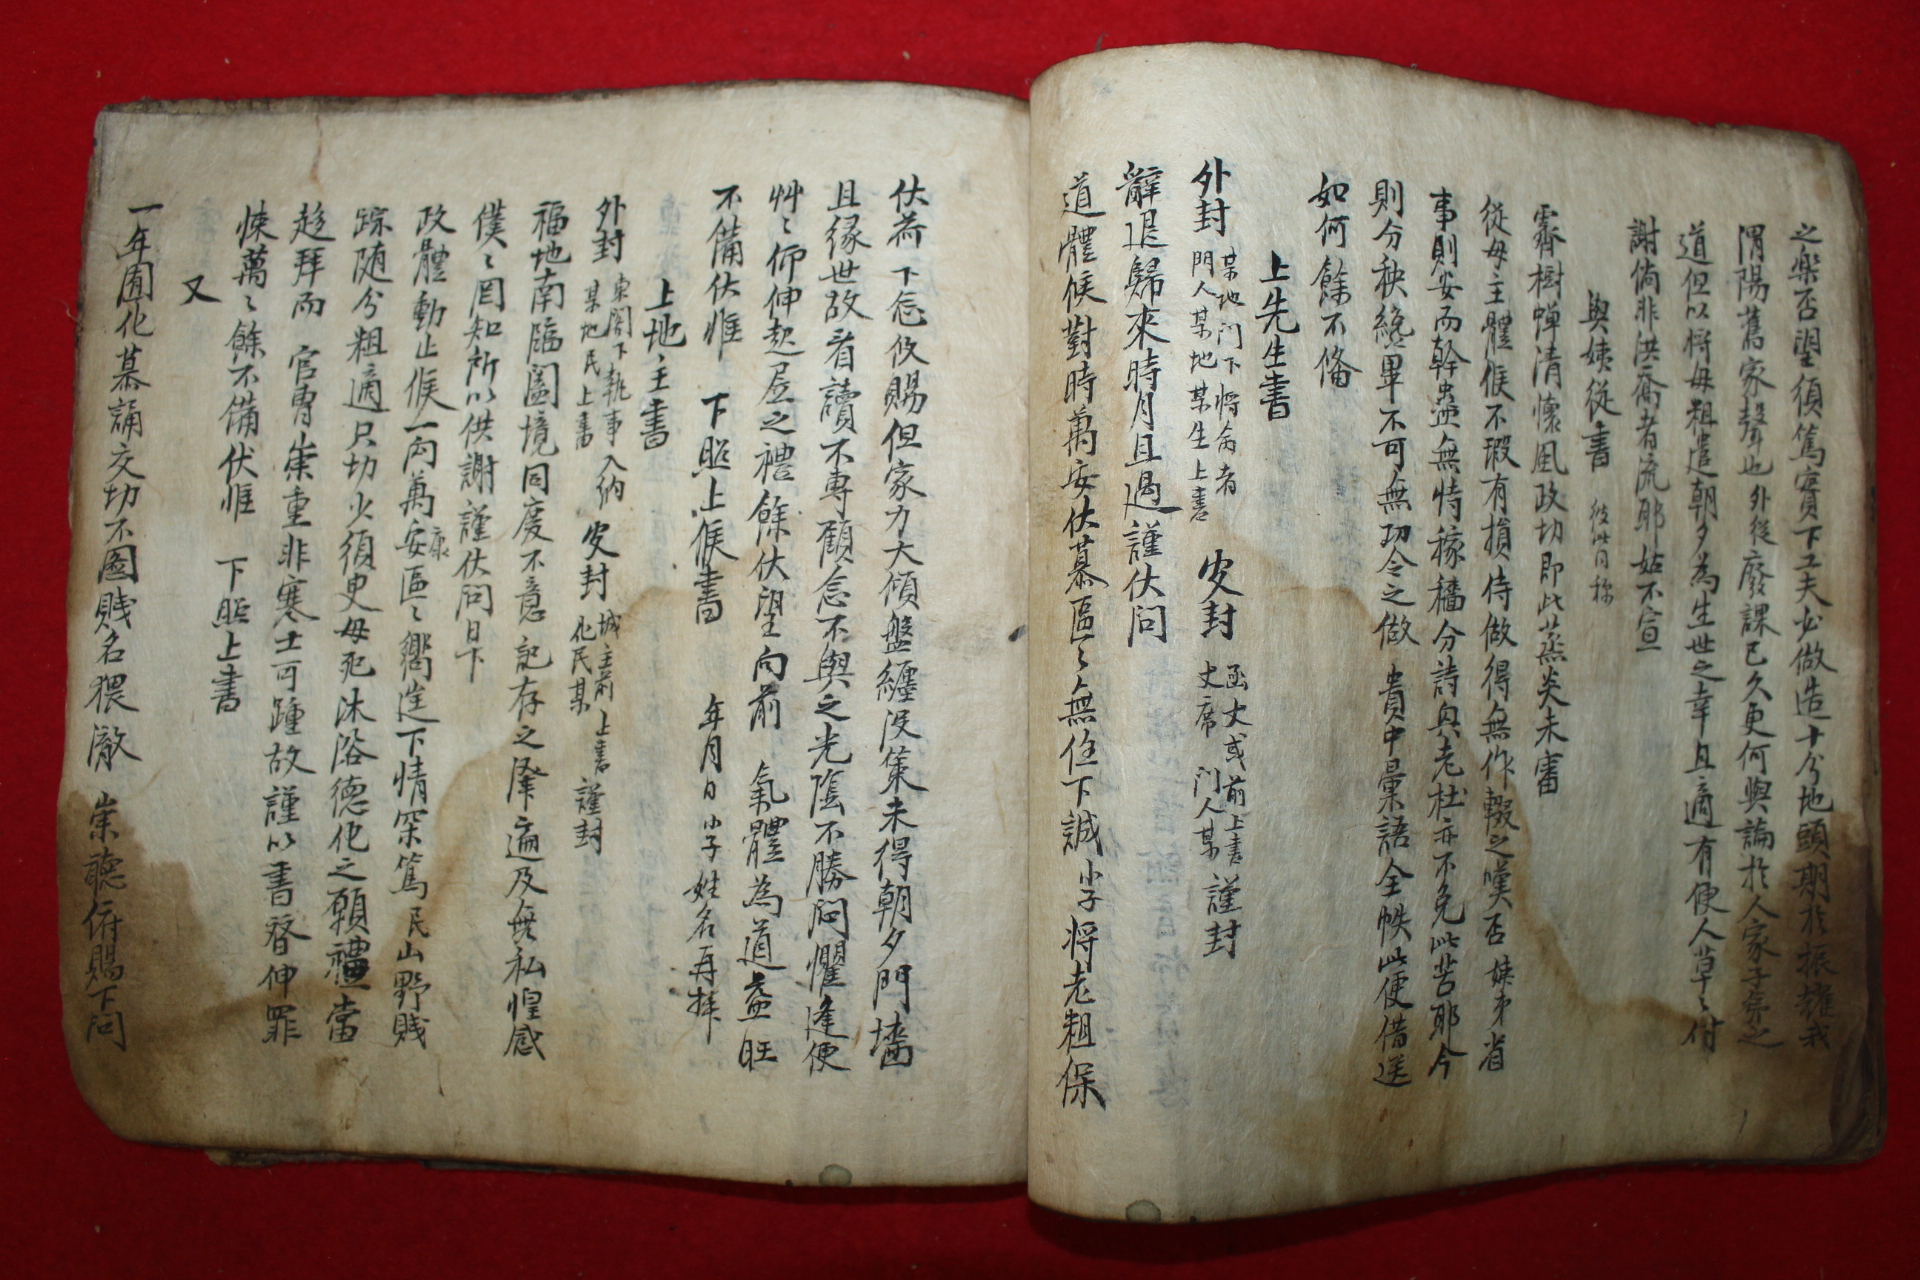 之樂否望須篤實下工夫必做造十分地頭期於振雄我
渭陽舊家聲也外從廢課已久更何與論於人家子弟之
道但以將母粗遣朝夕為生世之幸且適有便人草〻付
謝倘非洪喬者流耶姑不宣
與姨從書 彼此同称
霽樹蟬清懷風政切即此蒸炎未審
從母主體候不瑕有損侍做得無作輟之嘆否姨弟省
事則安而幹蠱無恃稼穡分詩與老杜亦不免此苦耶今
則分秧纔畢不可無功令之做 貴中彙語全帙此便借送
如何餘不俻
上先生書
外封 某地門下將命者 門人某地某生上書 皮封 函丈或前上書 丈席 門人某 謹封
辭退歸來時月且過謹伏問
道體候對時萬安伏慕區〻無任下誠小子將老粗保
伏荷 下念攸賜但家力大傾盤纏沒策未得朝夕門墻
且緣世故看讀不專顧念不與之光陰不勝悶懼逢便
艸〻仰伸起居之禮餘伏望向前 氣體為道益旺
不備伏惟 下照上候書 年月日小子姓名再拜
上地〻主書
外封 東閣下執事入納 某地民上書 皮封 城主前上書 化民某 謹封
福地南臨闔境同度不意記存之澤遍及無私惶感
僕〻罔知所以供謝謹伏問日下
政體動止候一向萬安康區〻嚮迬下情深篤民山野賤
踪随分粗適只切少須臾毋死沐浴德化之願禮當
趍拜而 官專崇重非寒士可踵故謹以書替伸罪
悚萬〻餘不備伏惟 下照上書
又
一年囿化慕誦交切不圖賤名猥澈 崇聽俯賜下問